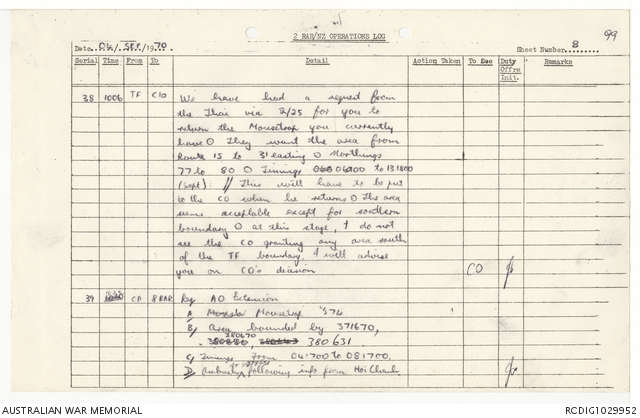 2 RAR/NZ OPERATIONS LOG
99
Date..06/SEP/1970
Sheet Number 8
Serial Time From To Detail Action Taken To See Duty Offrs Init. Remarks
38 1006 TF C10 We have had a request from
the Thai via 2/25 for you to
return the Mousetrap you currently
have O They want the area from
Route 15 to 31 easting O Northings
77 to 80 O Timings 060600 to 131800
(Sept) // This will have to be put
to the CO when he returns O The area
seems acceptable except for southern
boundary O at this stage, I do not
see the CO granting any area south
of the TF boundary. I will advise
you on CO's decision CO
39 CP 8 RAR Req AO Extension
A Mousetrap 374
B/ area bounded by 371670,
380670
380631
C/ Timings from 041700 to 081700.
D/ Ambush following info from Hoi Chanh.
AUSTRALIAN WAR MEMORIAL
RCDIG1029952